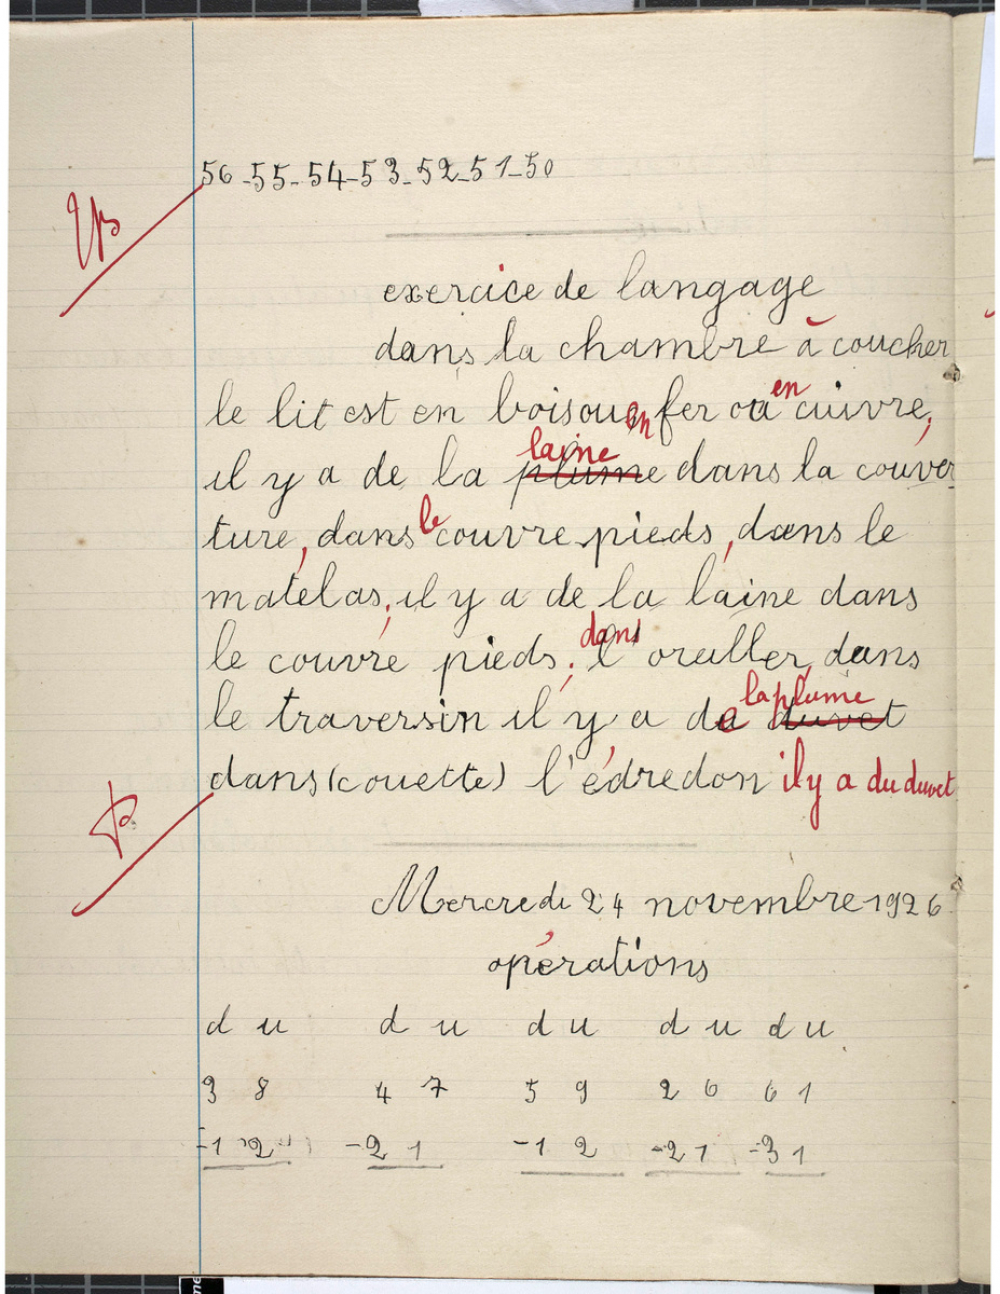 56-55-54-53-52-51-50
exercice de langage
dans la chambre à coucher
le lit est en bois ou en fer ou en cuivre,
il y a de la plume laine dans la couver
ture, dans le couvre pieds, dans le
matelas, il y a de la laine dans
le couvre pieds; dans l'oreiller, dans
le traversin il y a de duvet la plume
dans (couette) l'édredon il y a du duvet
Mercredi 24 novembre 1926
opérations
d u d u d u d u d u
3 8 4 7 5 9 2 6 6 1
-1 2 -2 1 -1 2 -2 1 -3 1